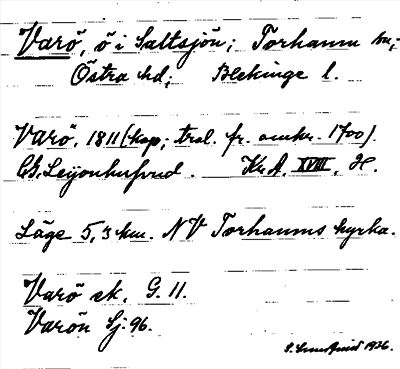 Varö, ö i Saltsjön; Torhamn sn;
Östra hd; Blekinge l.
Varö, 1811 (kop; trol. fr. omkr. 1700).
CG. Leijonhufvud. Kr.A. XVIII. H.
Läge 5,3 km. NV Torhamns kyrka.
Varö ek. G. 11.
Varön Sj. 96.
1936.